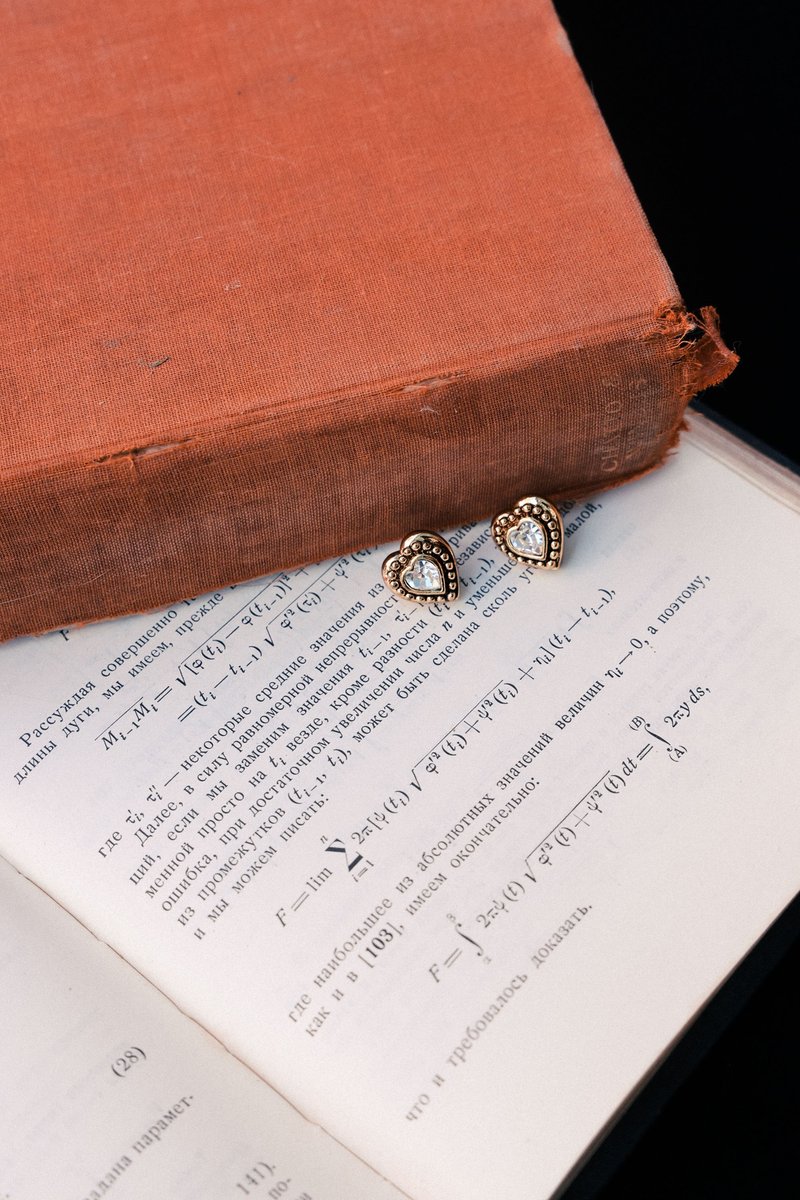 Рассуждая совершенно
длины дуги, мы имеем, прежде
M_{i-1}M_i = √[φ(t_i) − φ(t_{i-1})]² +
= (t_i − t_{i-1}) √φ'²(τ'_i) + ψ'²
где τ'_i, τ''_i — некоторые средние значения из
Далее, в силу равномерной непрерывности
ций, если мы заменим значения t_{i-1}, τ'_i,
менной просто на t_i везде, кроме разности
ошибка, при достаточном увеличении числа n и уменьше
из промежутков (t_{i-1}, t_i), может быть сделана сколь малой,
и мы можем писать:
F = lim ∑_{i=1}^{n} 2π [ψ(t_i) √φ'²(t_i) + ψ'²(t_i) + η_i] (t_i − t_{i-1}),
где наибольшее из абсолютных значений величин η_i → 0, а поэтому,
как и в [103], имеем окончательно:
F = ∫_α^β 2πψ(t) √φ'²(t) + ψ'²(t) dt = ∫_{(A)}^{(B)} 2πy ds,
что и требовалось доказать.
(28)
парамет-
141).
по-